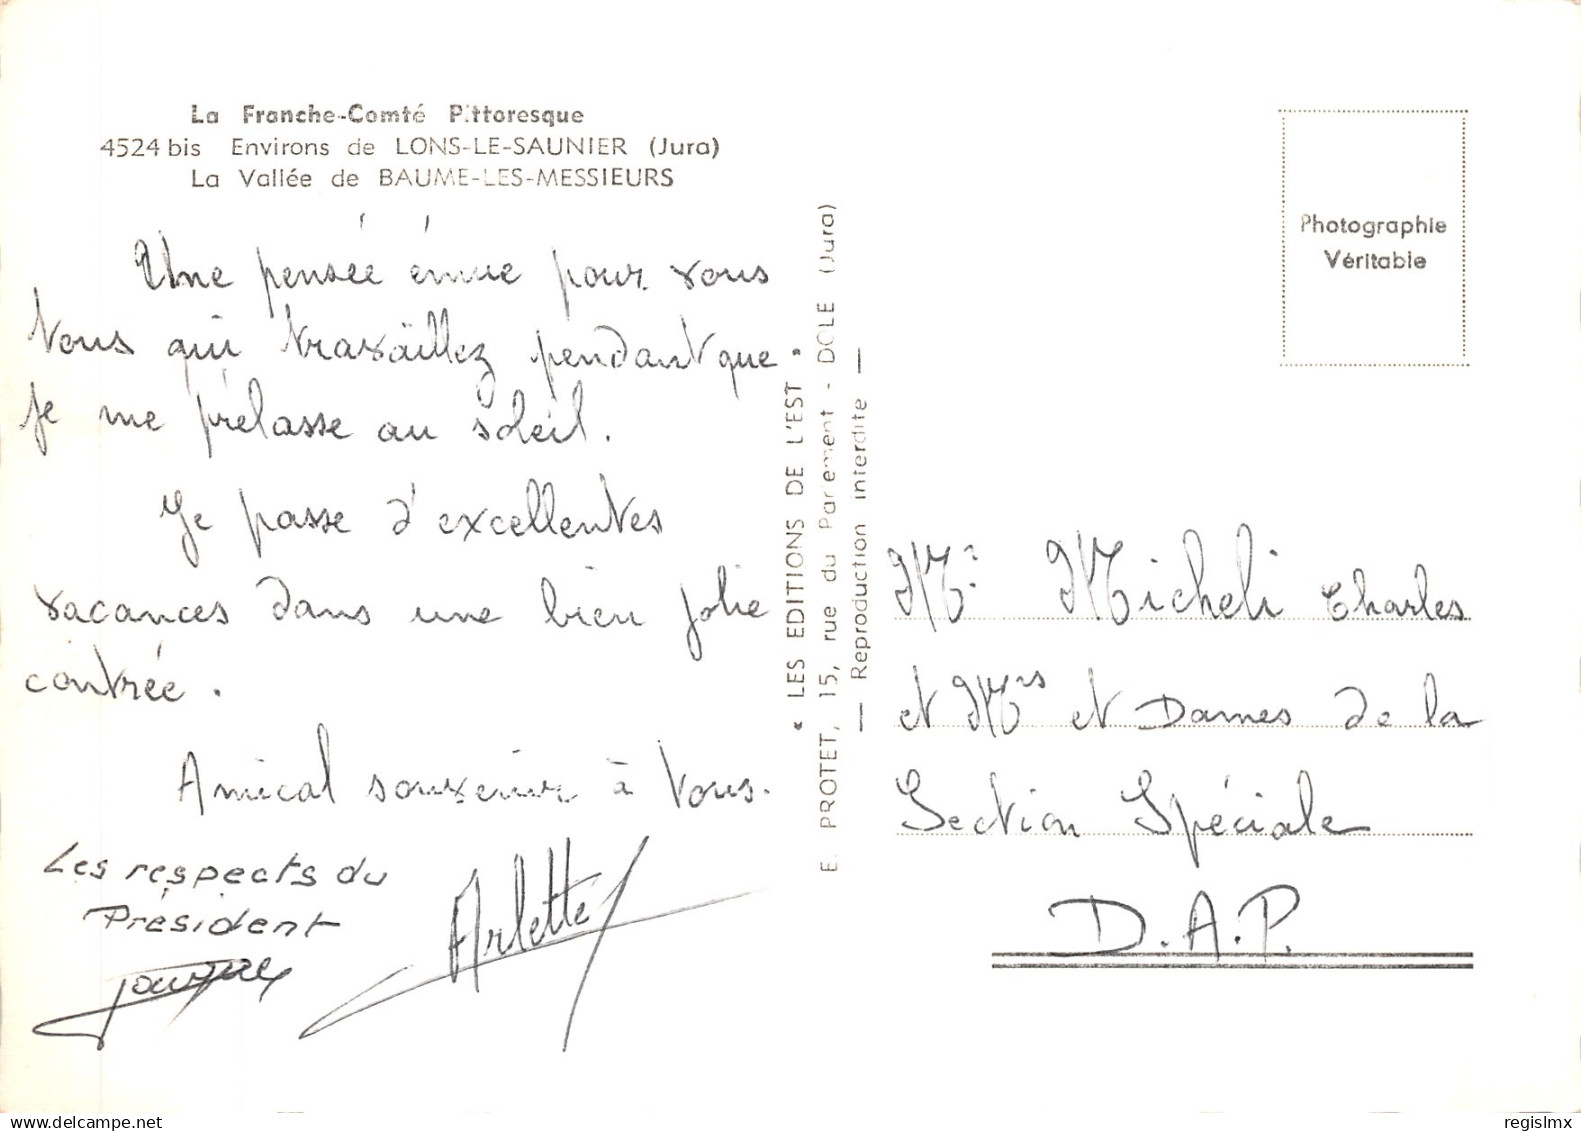 La Franche-Comté Pittoresque
4524 bis Environs de LONS-LE-SAUNIER (Jura)
La Vallée de BAUME-LES-MESSIEURS
Une pensée émue pour vous
Vous qui travaillez pendant que
je me prélasse au soleil.
Je passe d'excellentes
vacances dans une bien jolie
contrée.
Amical souvenir à Vous.
Les respects du
Président
Arlette
« LES EDITIONS DE L'EST »
E. PROTET, 15, rue du Parlement - DOLE (Jura)
— Reproduction interdite —
Photographie
Véritable
Mr. Micheli Charles
et Mrs et Dames de la
Section Spéciale
D.A.P.
regislmx